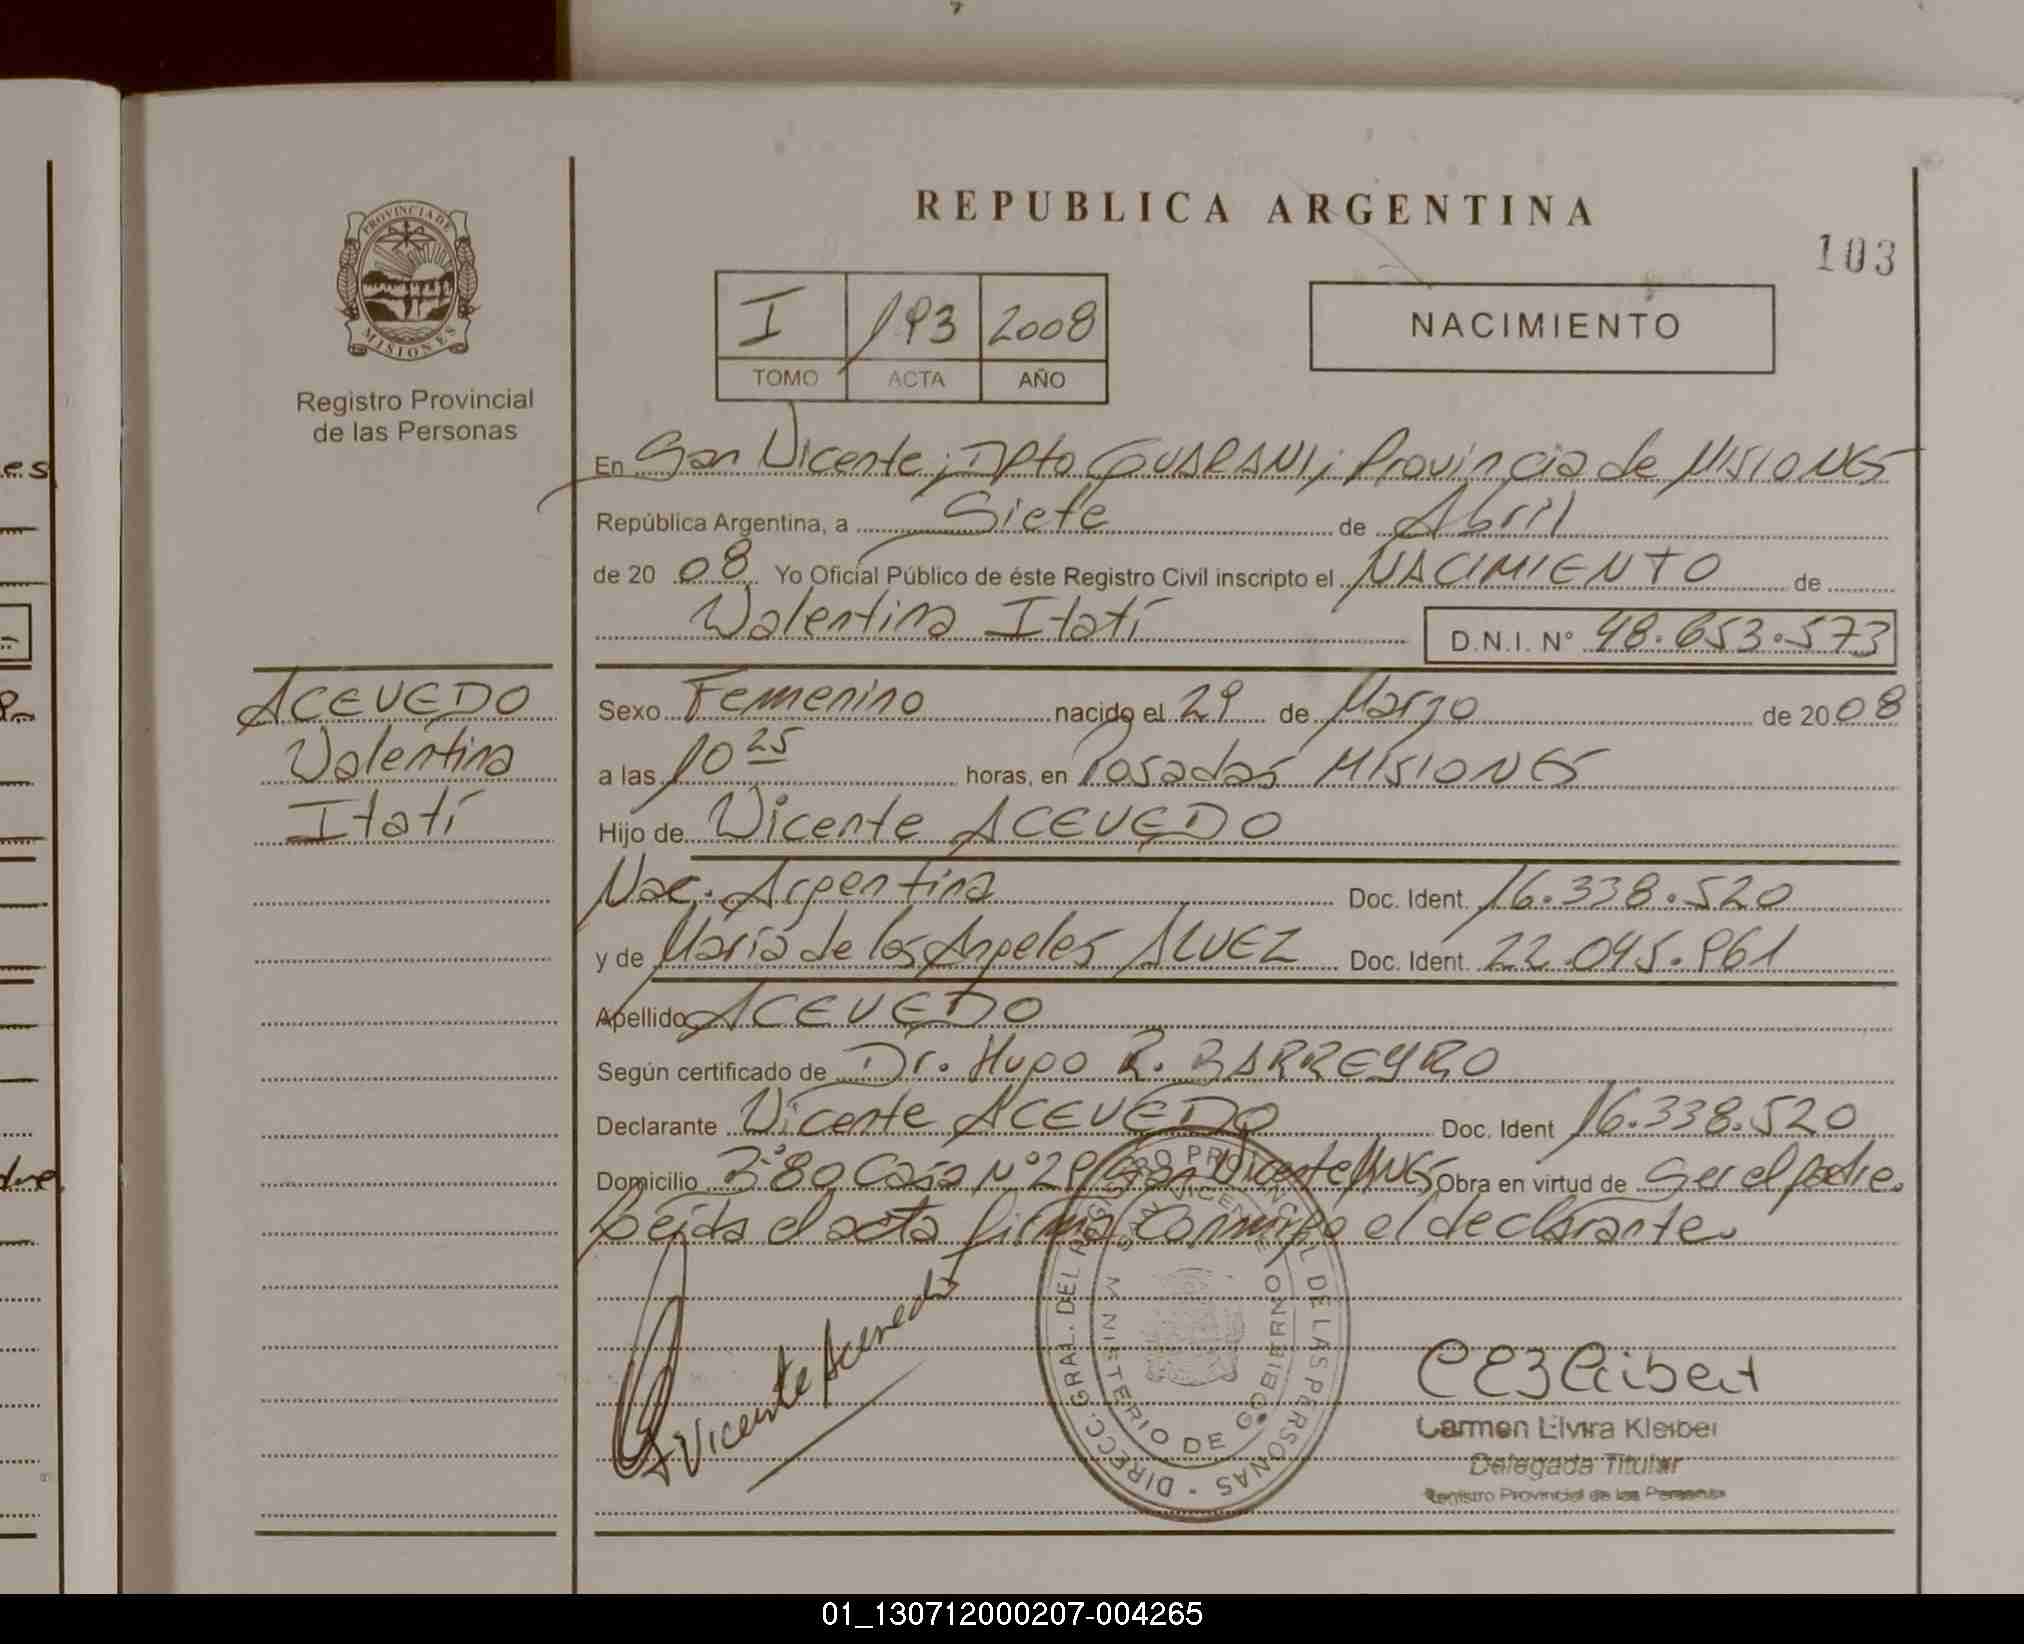 REPUBLICA ARGENTINA
103
PROVINCIA DE
MISIONES
Registro Provincial
de las Personas
I 193 2008
TOMO ACTA AÑO
NACIMIENTO
En San Vicente; Dpto GUARANI; Provincia de MISIONES
República Argentina, a Siete de Abril
de 20 08 Yo Oficial Público de éste Registro Civil inscripto el NACIMIENTO de
Valentina Itatí D.N.I. N° 48.653.573
ACEVEDO
Valentina
Itatí
Sexo Femenino nacido el 29 de Marzo de 2008
a las 10 25 horas, en Posadas MISIONES
Hijo de Vicente ACEVEDO
Nac. Argentina Doc. Ident. 16.338.520
y de María de los Angeles ALVEZ Doc. Ident. 22.045.961
Apellido ACEVEDO
Según certificado de Dr. Hugo R. BARREYRO
Declarante Vicente ACEVEDO Doc. Ident 16.338.520
Domicilio B° 80 Casa N° 29 San Vicente Mnes Obra en virtud de Ser el padre.
Leída el acta firma conmigo el declarante.
Vicente Acevedo
DIRECC. GRAL. DEL REGISTRO PROVINCIAL DE LAS PERSONAS
SAN VICENTE
MINISTERIO DE GOBIERNO
CEKleiber
Carmen Elvira Kleiber
Delegada Titular
Registro Provincial de las Personas
es
01_130712000207-004265